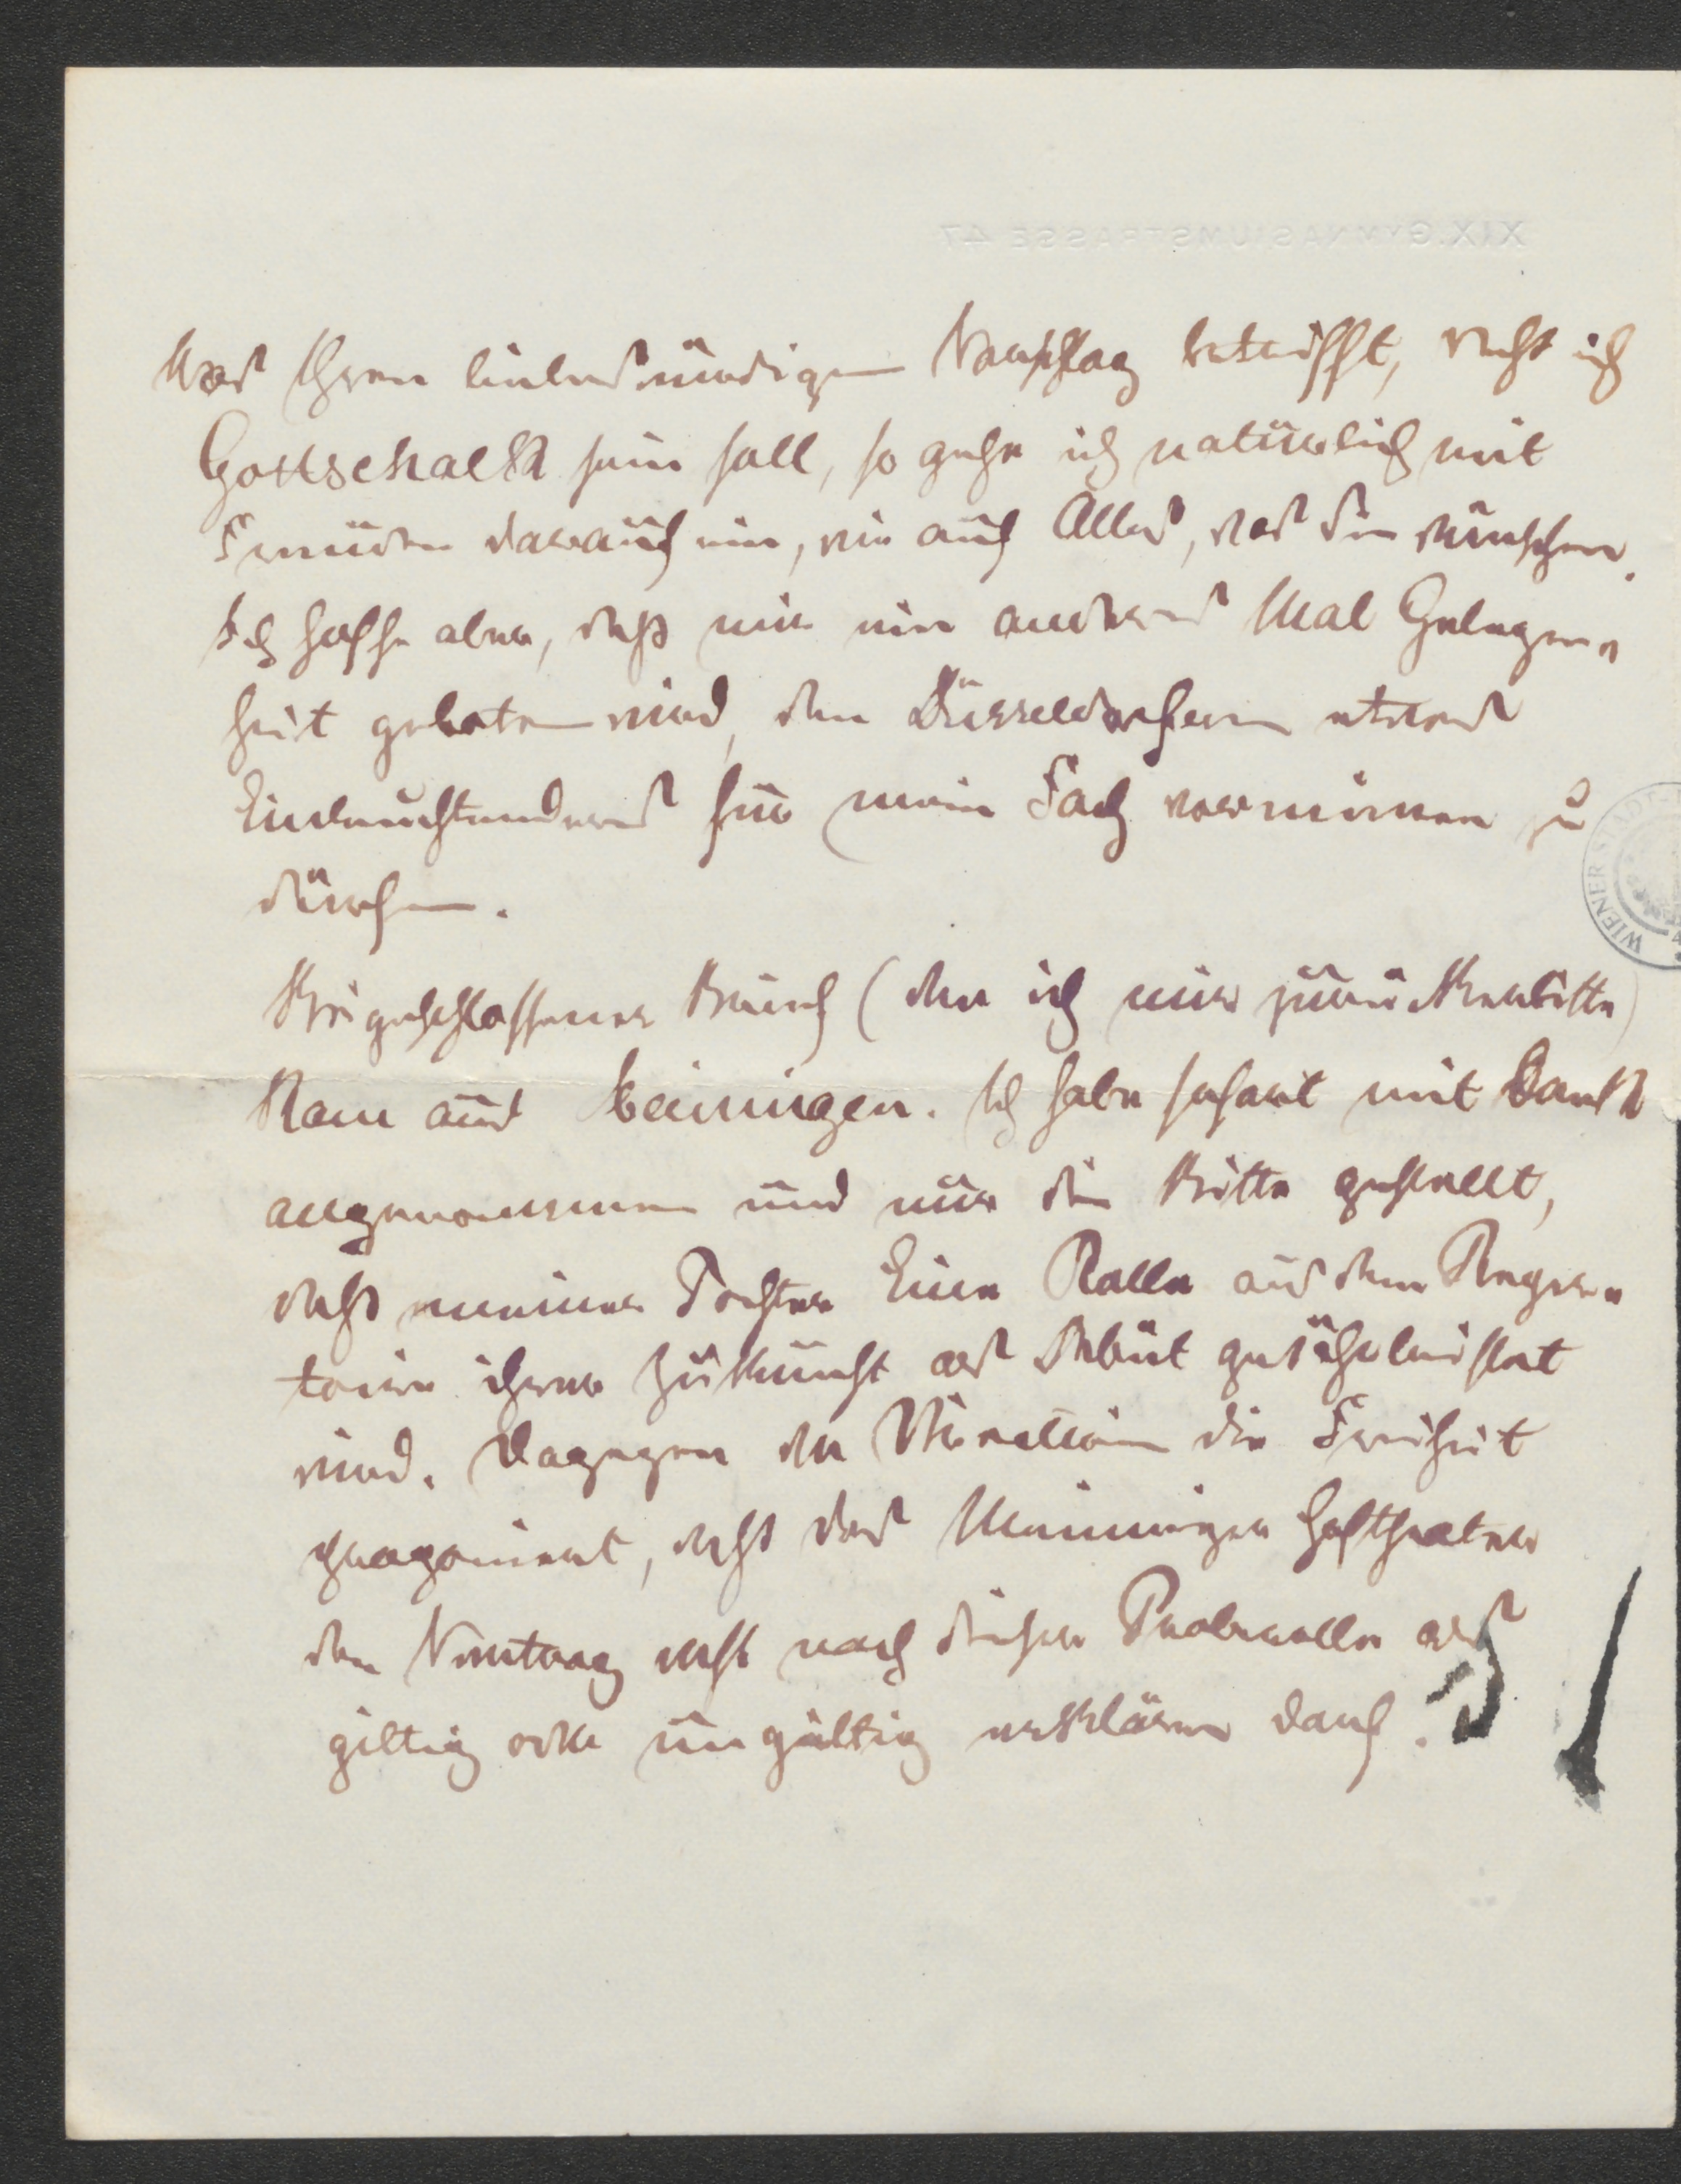 XIX. GYMNASIUMSTRASSE 47
Was Ihren liebenswürdigen Vorschlag betrifft, daß ich
Gottschalk sein soll, so gehe ich natürlich mit
Freuden darauf ein, wie auf Alles, was Sie wünschen.
Ich hoffe aber, daß mir ein anderes Mal Gelegen-
heit geboten wird, den Düsseldorfern etwas
Einleuchtenderes für mein Fach vormimen zu
dürfen.
Beigeschlossener Brief (den ich mir zurückerbitte)
kam aus Meiningen. Ich habe sofort mit Dank
angenommen und nur die Bitte gestellt,
daß meiner Tochter Eine Rolle aus dem Reper-
toire ihrer Zukunft als Debüt gewährleistet
wird. Dagegen der Direction die Freiheit
proponiert, daß das Meininger Hoftheater
den Vertrag erst nach dieser Proberolle als
giltig oder ungültig erklären darf.
WIENER STADT-